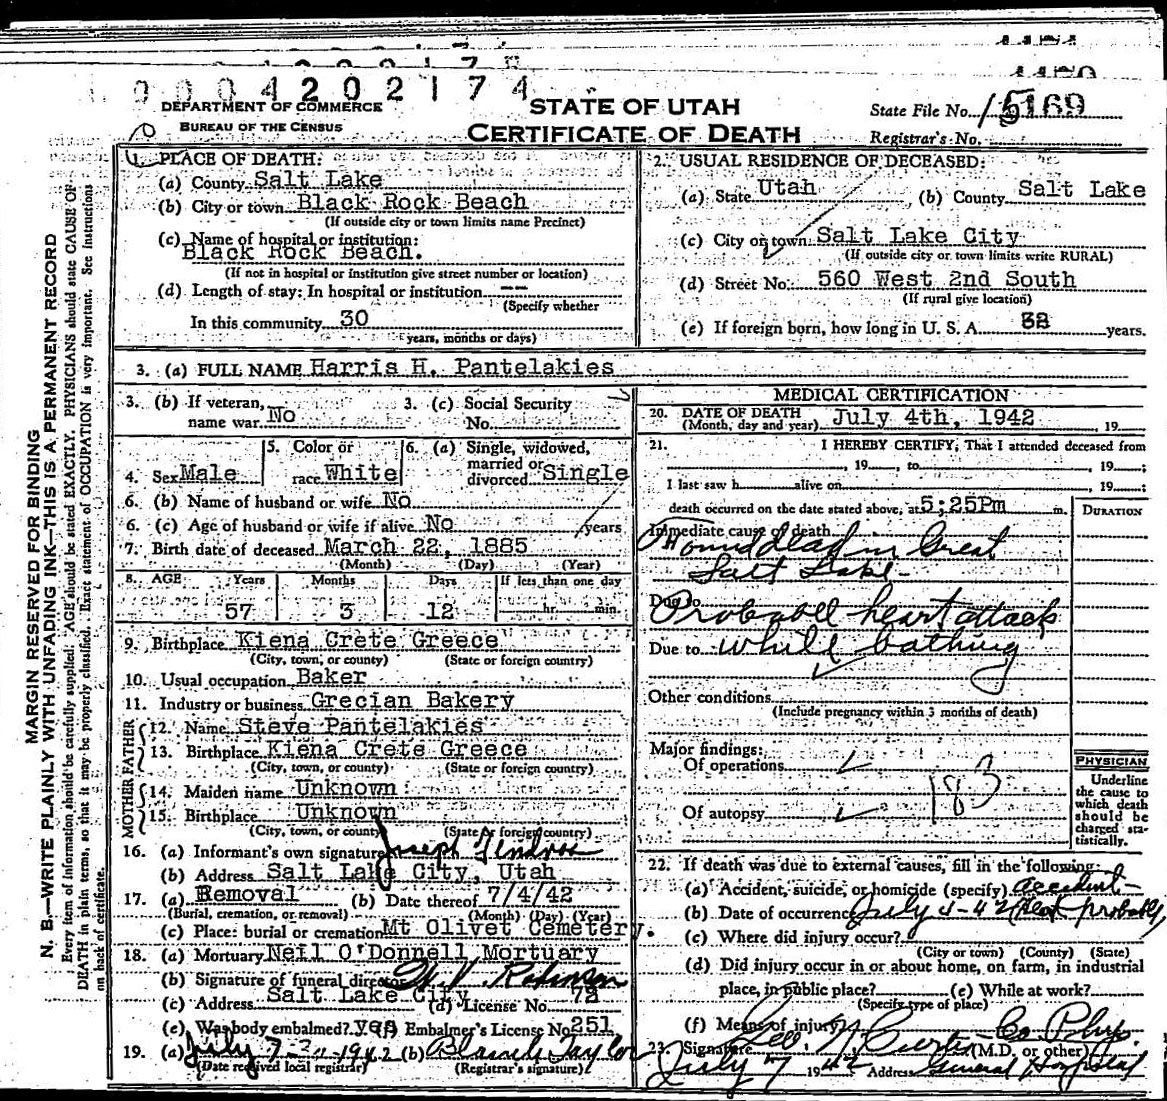 0004202174
DEPARTMENT OF COMMERCE
BUREAU OF THE CENSUS
STATE OF UTAH
CERTIFICATE OF DEATH
State File No. 15169
Registrar's No.
MARGIN RESERVED FOR BINDING
N. B.—WRITE PLAINLY WITH UNFADING INK—THIS IS A PERMANENT RECORD
Every item of information should be carefully supplied. AGE should be stated EXACTLY. PHYSICIANS should state CAUSE OF
DEATH in plain terms, so that it may be properly classified. Exact statement of OCCUPATION is very important. See instructions
on back of certificate.
1. PLACE OF DEATH:
(a) County Salt Lake
(b) City or town Black Rock Beach
(If outside city or town limits name Precinct)
(c) Name of hospital or institution:
Black Rock Beach.
(If not in hospital or institution give street number or location)
(d) Length of stay: In hospital or institution --
(Specify whether
In this community 30
years, months or days)
2. USUAL RESIDENCE OF DECEASED:
(a) State Utah (b) County Salt Lake
(c) City or town Salt Lake City
(If outside city or town limits write RURAL)
(d) Street No. 560 West 2nd South
(If rural give location)
(e) If foreign born, how long in U. S. A. years.
3. (a) FULL NAME Harris H. Pantelakies
3. (b) If veteran, name war No 3. (c) Social Security No.
4. Sex Male 5. Color or race White 6. (a) Single, widowed, married or divorced Single
6. (b) Name of husband or wife No
6. (c) Age of husband or wife if alive No years
7. Birth date of deceased March 22, 1885
(Month) (Day) (Year)
8. AGE Years Months Days If less than one day
57 3 12 hr. min.
9. Birthplace Kiena Crete Greece
(City, town, or county) (State or foreign country)
10. Usual occupation Baker
11. Industry or business Grecian Bakery
FATHER
12. Name Steve Pantelakies
13. Birthplace Kiena Crete Greece
(City, town, or county) (State or foreign country)
MOTHER
14. Maiden name Unknown
15. Birthplace Unknown
(City, town, or county) (State or foreign country)
16. (a) Informant's own signature Joseph
(b) Address Salt Lake City, Utah
17. (a) Removal (b) Date thereof 7/4/42
(Burial, cremation, or removal) (Month) (Day) (Year)
(c) Place: burial or cremation Mt Olivet Cemetery.
18. (a) Mortuary Neil O'Donnell Mortuary
(b) Signature of funeral director Robinson
(c) Address Salt Lake City (d) License No. 72
(e) Was body embalmed? yes (f) Embalmer's License No 251
19. (a) July 7- 1942 (b) Blanche Taylor
(Date received local registrar) (Registrar's signature)
MEDICAL CERTIFICATION
20. DATE OF DEATH
(Month, day and year) July 4th, 1942, 19
21. I HEREBY CERTIFY, That I attended deceased from
, 19 , to , 19 ;
I last saw h alive on , 19 ;
death occurred on the date stated above, at 5;25Pm m.
DURATION
Immediate cause of death
Found dead in Great
Salt Lake-
Due to Probable heart attack
Due to while bathing
Other conditions
(Include pregnancy within 3 months of death)
Major findings:
Of operations
Of autopsy
183
PHYSICIAN
Underline
the cause to
which death
should be
charged sta-
tistically.
22. If death was due to external causes, fill in the following:
(a) Accident, suicide, or homicide (specify) accident-
(b) Date of occurrence July 4-42 probably
(c) Where did injury occur?
(City or town) (County) (State)
(d) Did injury occur in or about home, on farm, in industrial
place, in public place? (e) While at work?
(Specify type of place)
(f) Means of injury
23. Signature Geo. N. Curtis Co Phys.
(M.D. or other)
July 7 1942 Address General Hospital